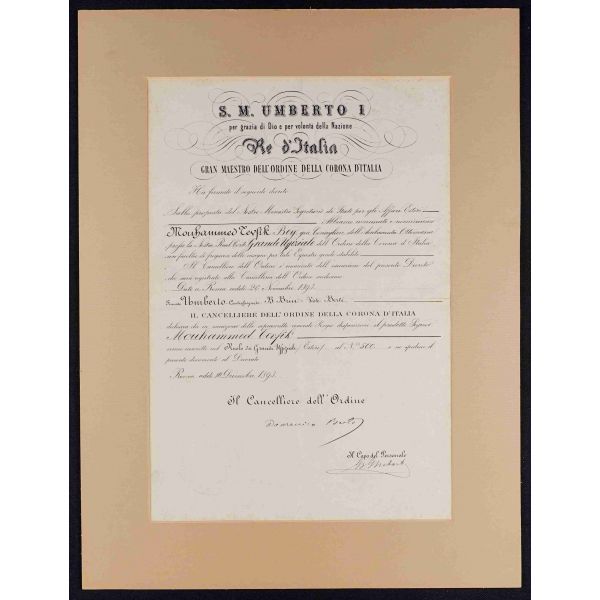 S. M. UMBERTO I
per grazia di Dio e per volontà della Nazione
Re d'Italia
GRAN MAESTRO DELL'ORDINE DELLA CORONA D'ITALIA
Ha firmato il seguente decreto
Sulla proposta del Nostro Ministro Segretario di Stato per gli Affari Esteri
Abbiamo nominato e nominiamo
Mouhammed Tevfik Bey già Consigliere dell'Ambasciata Ottomana
presso la Nostra Real Corte Grand'Uffiziale dell'Ordine della Corona d'Italia
con facoltà di fregiarsi delle insegne per tale Equestre grado stabilite
Il Cancelliere dell'Ordine è incaricato dell'esecuzione del presente Decreto
che sarà registrato alla Cancelleria dell'Ordine medesimo
Dato a Roma addì 26 Novembre 1893
Firmato Umberto Controfirmato B. Brin Visto
IL CANCELLIERE DELL'ORDINE DELLA CORONA D'ITALIA
dichiara che in esecuzione delle sopra scritte Sovrane disposizioni il predetto Signor
Mouhammed Tevfik
venne inscritto nel Ruolo dei Grandi Uffiziali (Esteri) al N.º 500 e ne spedisce il
presente documento al Decorato
Roma addì 10 Dicembre 1893
Il Cancelliere dell'Ordine
Il Capo del Personale